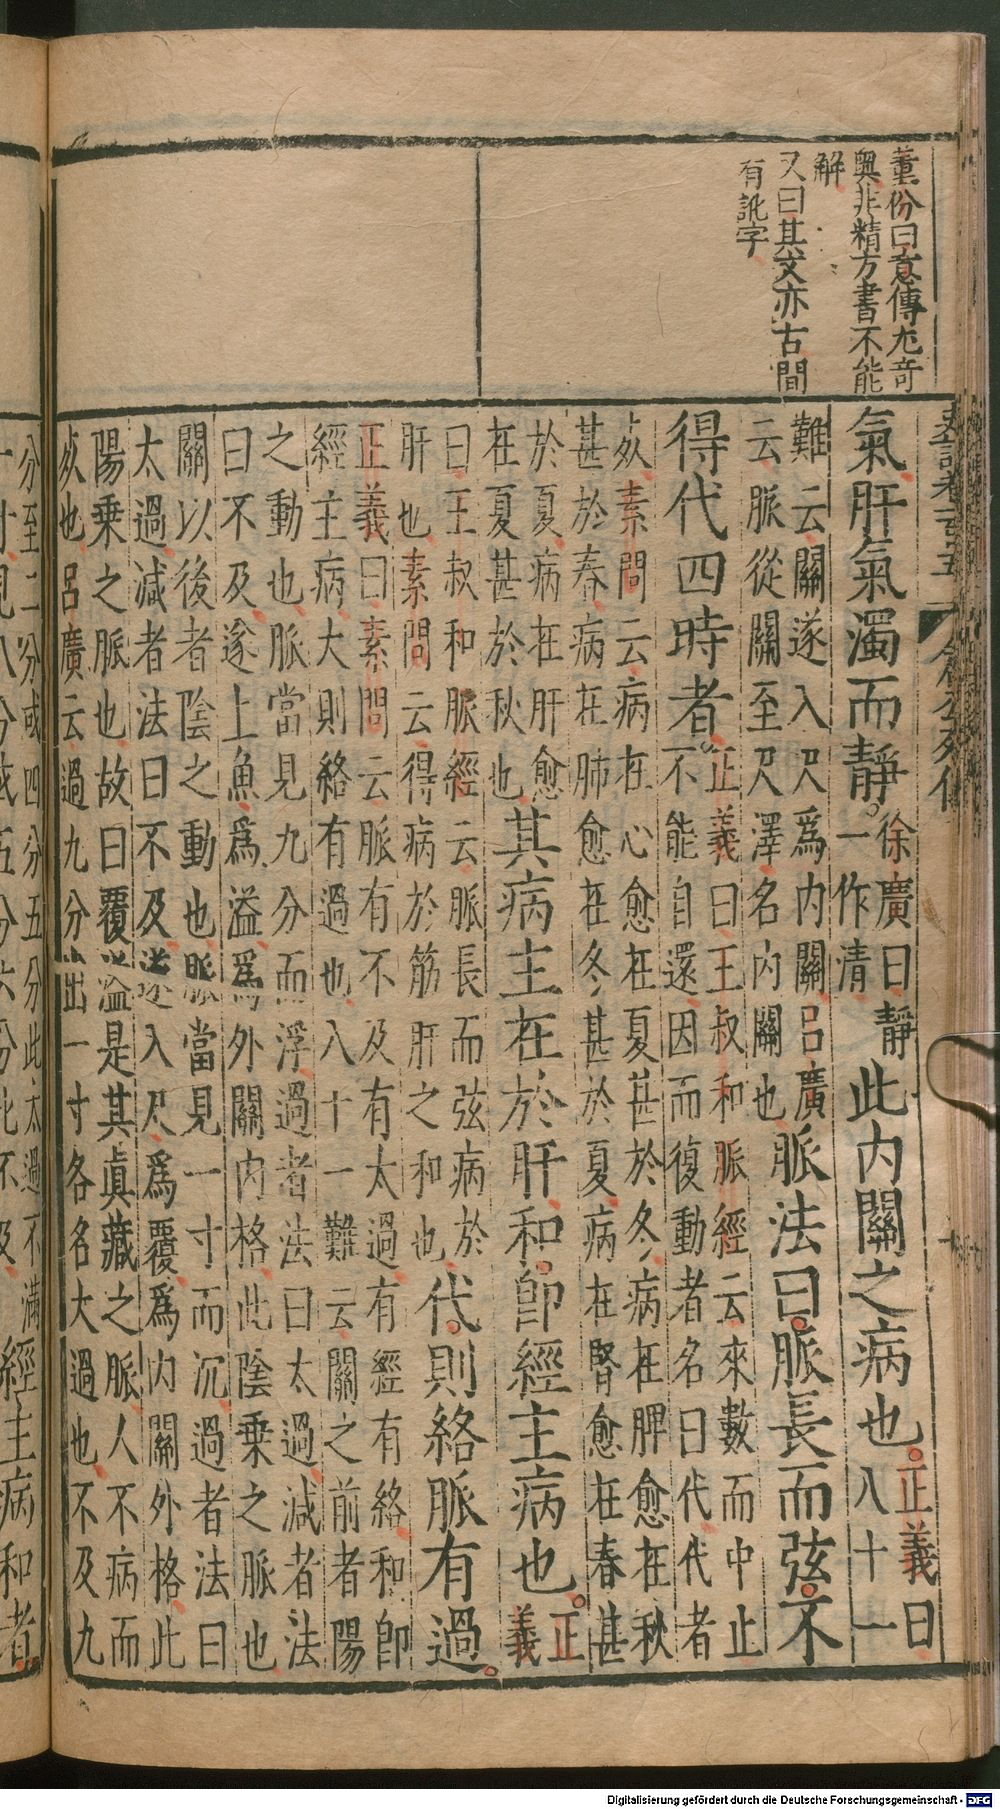 董份曰意傳尤竒
奥非精方書不能
解
又曰其文亦古間
有訛字
氣肝氣濁而靜。徐廣曰靜
一作清
此内關之病也。正義曰
八十一
難云關遂入尺爲内關呂廣
云脈從關至尺澤名内關也
脈法曰脈長而弦不
得代四時者。正義曰王叔和脈經云來數而中止
不能自還因而復動者名曰代代者
死素問云病在心愈在夏甚於冬病在脾愈在秋
甚於春病在肺愈在冬甚於夏病在腎愈在春甚
於夏病在肝愈
在夏甚於秋也
其病主在於肝和。即經主病也。正
義
曰王叔和脈經云脈長而弦病於
肝也素問云得病於筋肝之和也
代。則絡脈有過。
正義曰素問云脈有不及有太過有經有絡和即
經主病大則絡有過也八十一難云關之前者陽
之動也脈當見九分而浮過者法曰太過減者法
曰不及遂上魚爲溢爲外關内格此陰乗之脈也
關以後者陰之動也脈當見一寸而沉過者法曰
太過減者法曰不及遂入尺爲覆爲内關外格此
陽乗之脈也故曰覆溢是其眞藏之脈人不病而
死也呂廣云過九分出一寸各名大過也不及九
分至二分或四分五分此太過不滿
一寸見八分或五分六分此不及
經主病和者
Digitalisierung gefördert durch die Deutsche Forschungsgemeinschaft - DFG